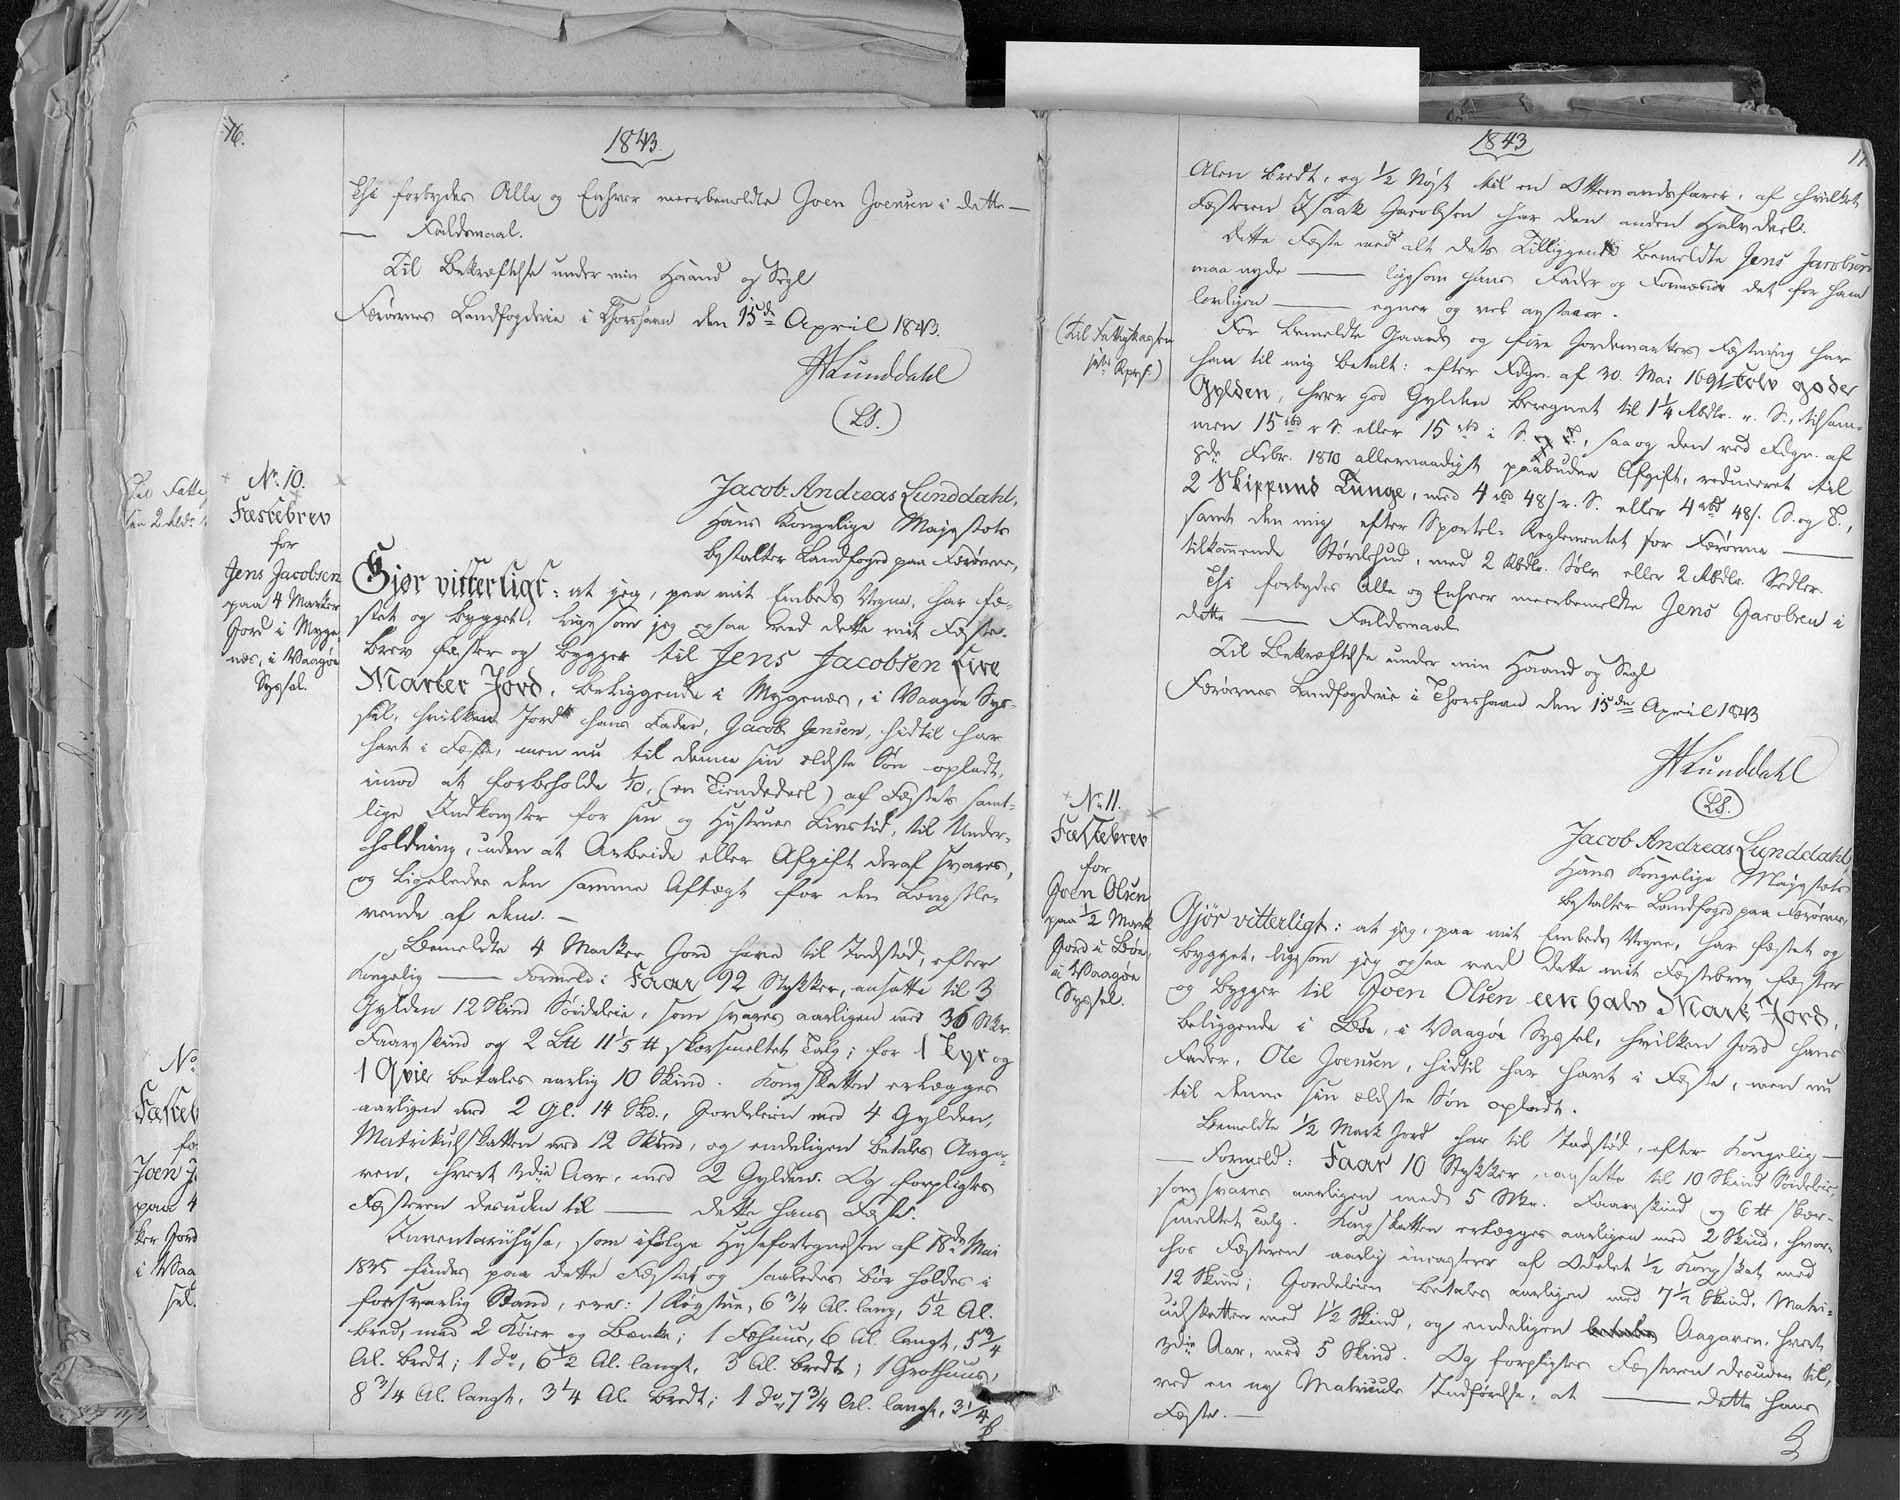 16.
1843.
Thi forbydes Alle og Enhver meerbemeldte Joen Joensen i dette —
— Faldsmaal.
Til Bekræftelse under min Haand og Segl
Færøernes Landfogderie i Thorshavn den 15de April 1843.
JALunddahl
(LS.)
No. 10.
Fæstebrev
for
Jens Jacobsen
paa 4 Marker
Jord i Myge-
næs, i Vaagøe
Syssel.
Jacob Andreas Lunddahl,
Hans Kongelige Majestæts
bestalter Landfoged paa Færøerne,
Gjør vitterligt: at jeg, paa mit Embeds Vegne, har fæ-
stet og bygget, ligesom jeg ogsaa ved dette mit Fæste-
brev fæster og bygger til Jens Jacobsen fire
Marker Jord, beliggende i Mygenæs, i Vaagøe Sys-
sel, hvilken Jord hans Fader, Jacob Jensen, hidtil har
havt i Fæste, men nu til denne sin ældste Søn opladt,
imod at forbeholde 1/10, (en Tiendedeel) af Fæstets samt-
lige Indkomster for sin og Hustrues Livstid, til Under-
holdning, uden at Arbeide eller Afgift deraf svares,
og ligeledes den samme Aftægt for den Længstle-
vende af dem. —
Bemeldte 4 Marker Jord have til Indstød, efter
Kongelig — Formeld: Faar 92 Stykker, ansatte til 3
Gylden 12 Skind Søideleie, som svares aarligen med 36 Stkr.
Faareskind og 2 Ltt 11 1/5 tt skærsmeltet Talg; for 1 Tyr og
1 Qvie betales aarlig 10 Skind. Kongskatten erlægges
aarligen med 2 Gl. 14 Skd., Jordeleien med 4 Gylden,
Matrikulskatten med 12 Skind, og endeligen betales Aaga-
ven, hvert 3die Aar, med 2 Gylden. Og forpligtes
Fæsteren desuden til — dette hans Fæste.
Inventariihuse, som ifølge Husefortegnelsen af 18de Mai
1835 findes paa dette Fæste og saaledes bør holdes i
forsvarlig Stand, ere: 1 Røgstue, 6 3/4 Al. lang, 5 1/2 Al.
bred, med 2 Køier og Bænke; 1 Fæhuus, 6 Al. langt, 5 3/4
Al. bredt; 1 do, 6 1/2 Al. langt, 5 Al. bredt; 1 Grothuus,
8 3/4 Al. langt, 3 1/4 Al. bredt; 1 do, 7 3/4 Al. langt, 3 1/4
1843
17
Alen bredt, og 1/2 Nøst til en Ottemandsfarer, af hvilket
Fæsteren Isaak Jacobsen har den anden Halvdeel.
Dette Fæste med alt dets Tilliggende bemeldte Jens Jacobsen
maa nyde — ligesom hans Fader og Formænd det for ham
lovligen — egner og vel anstaaer.
(til Fattigkassen
For bemeldte Gaards og fire Jordemarkers Fæstning har
han til mig betalt: efter Fdgn. af 30. Mai 1691 tolv gode
Gylden, hver god Gylden beregnet til 1 1/4 Rbdlr. r. S., tilsam-
men 15 rbd r S. eller 15 rbd i S. og T., saa og den ved Fdgn. af
8de Febr. 1810 allernaadigst paabudne Afgift, reduceret til
2 Skippund Tunge, med 4 rbd 48 s. r. S. eller 4 rbd 48 s. S. og T.,
samt den mig efter Sportel-Reglementet for Færøerne —
tilkommende Størdehud, med 2 Rbdlr. Sølv eller 2 Rbdlr. Sedler.
Thi forbydes Alle og Enhver meerbemeldte Jens Jacobsen i
dette — Faldsmaal
Til Bekræftelse under min Haand og Segl
Færøernes Landfogderie i Thorshavn den 15de April 1843
JALunddahl
(LS.)
No. 11.
Fæstebrev
for
Joen Olsen
paa 1/2 Mark
Jord i Bøe,
i Vaagøe
Syssel.
Jacob Andreas Lunddahl,
Hans Kongelige Majestæts
bestalter Landfoged paa Færøerne,
Gjør vitterligt: at jeg, paa mit Embeds Vegne, har fæstet og
bygget, ligesom jeg ogsaa ved dette mit Fæstebrev fæster
og bygger til Joen Olsen een halv Mark Jord,
beliggende i Bøe, i Vaagøe Syssel, hvilken Jord hans
Fader, Ole Joensen, hidtil har havt i Fæste, men nu
til denne sin ældste Søn opladt.
Bemeldte 1/2 Mark Jord har til Indstød, efter Kongelig —
— Formeld: Faar 10 Stykker, ansatte til 10 Skind Søideleie,
som svares aarligen med 5 Stkr. Faareskind og 6 tt skær-
smeltet Talg. Kongskatten erlægges aarligen med 2 Skind, hvor-
hos Fæsteren aarlig incasserer af Odelet 1/2 Kongskat med
12 Skind; Jordeleien betales aarligen med 7 1/2 Skind, Matri-
culskatten med 1 1/2 Skind, og endeligen betales Aagaven, hvert
3die Aar, med 5 Skind. Og forpligtes Fæsteren desuden til,
ved en ny Matriculs Indførelse, at — dette hans
Fæste. —